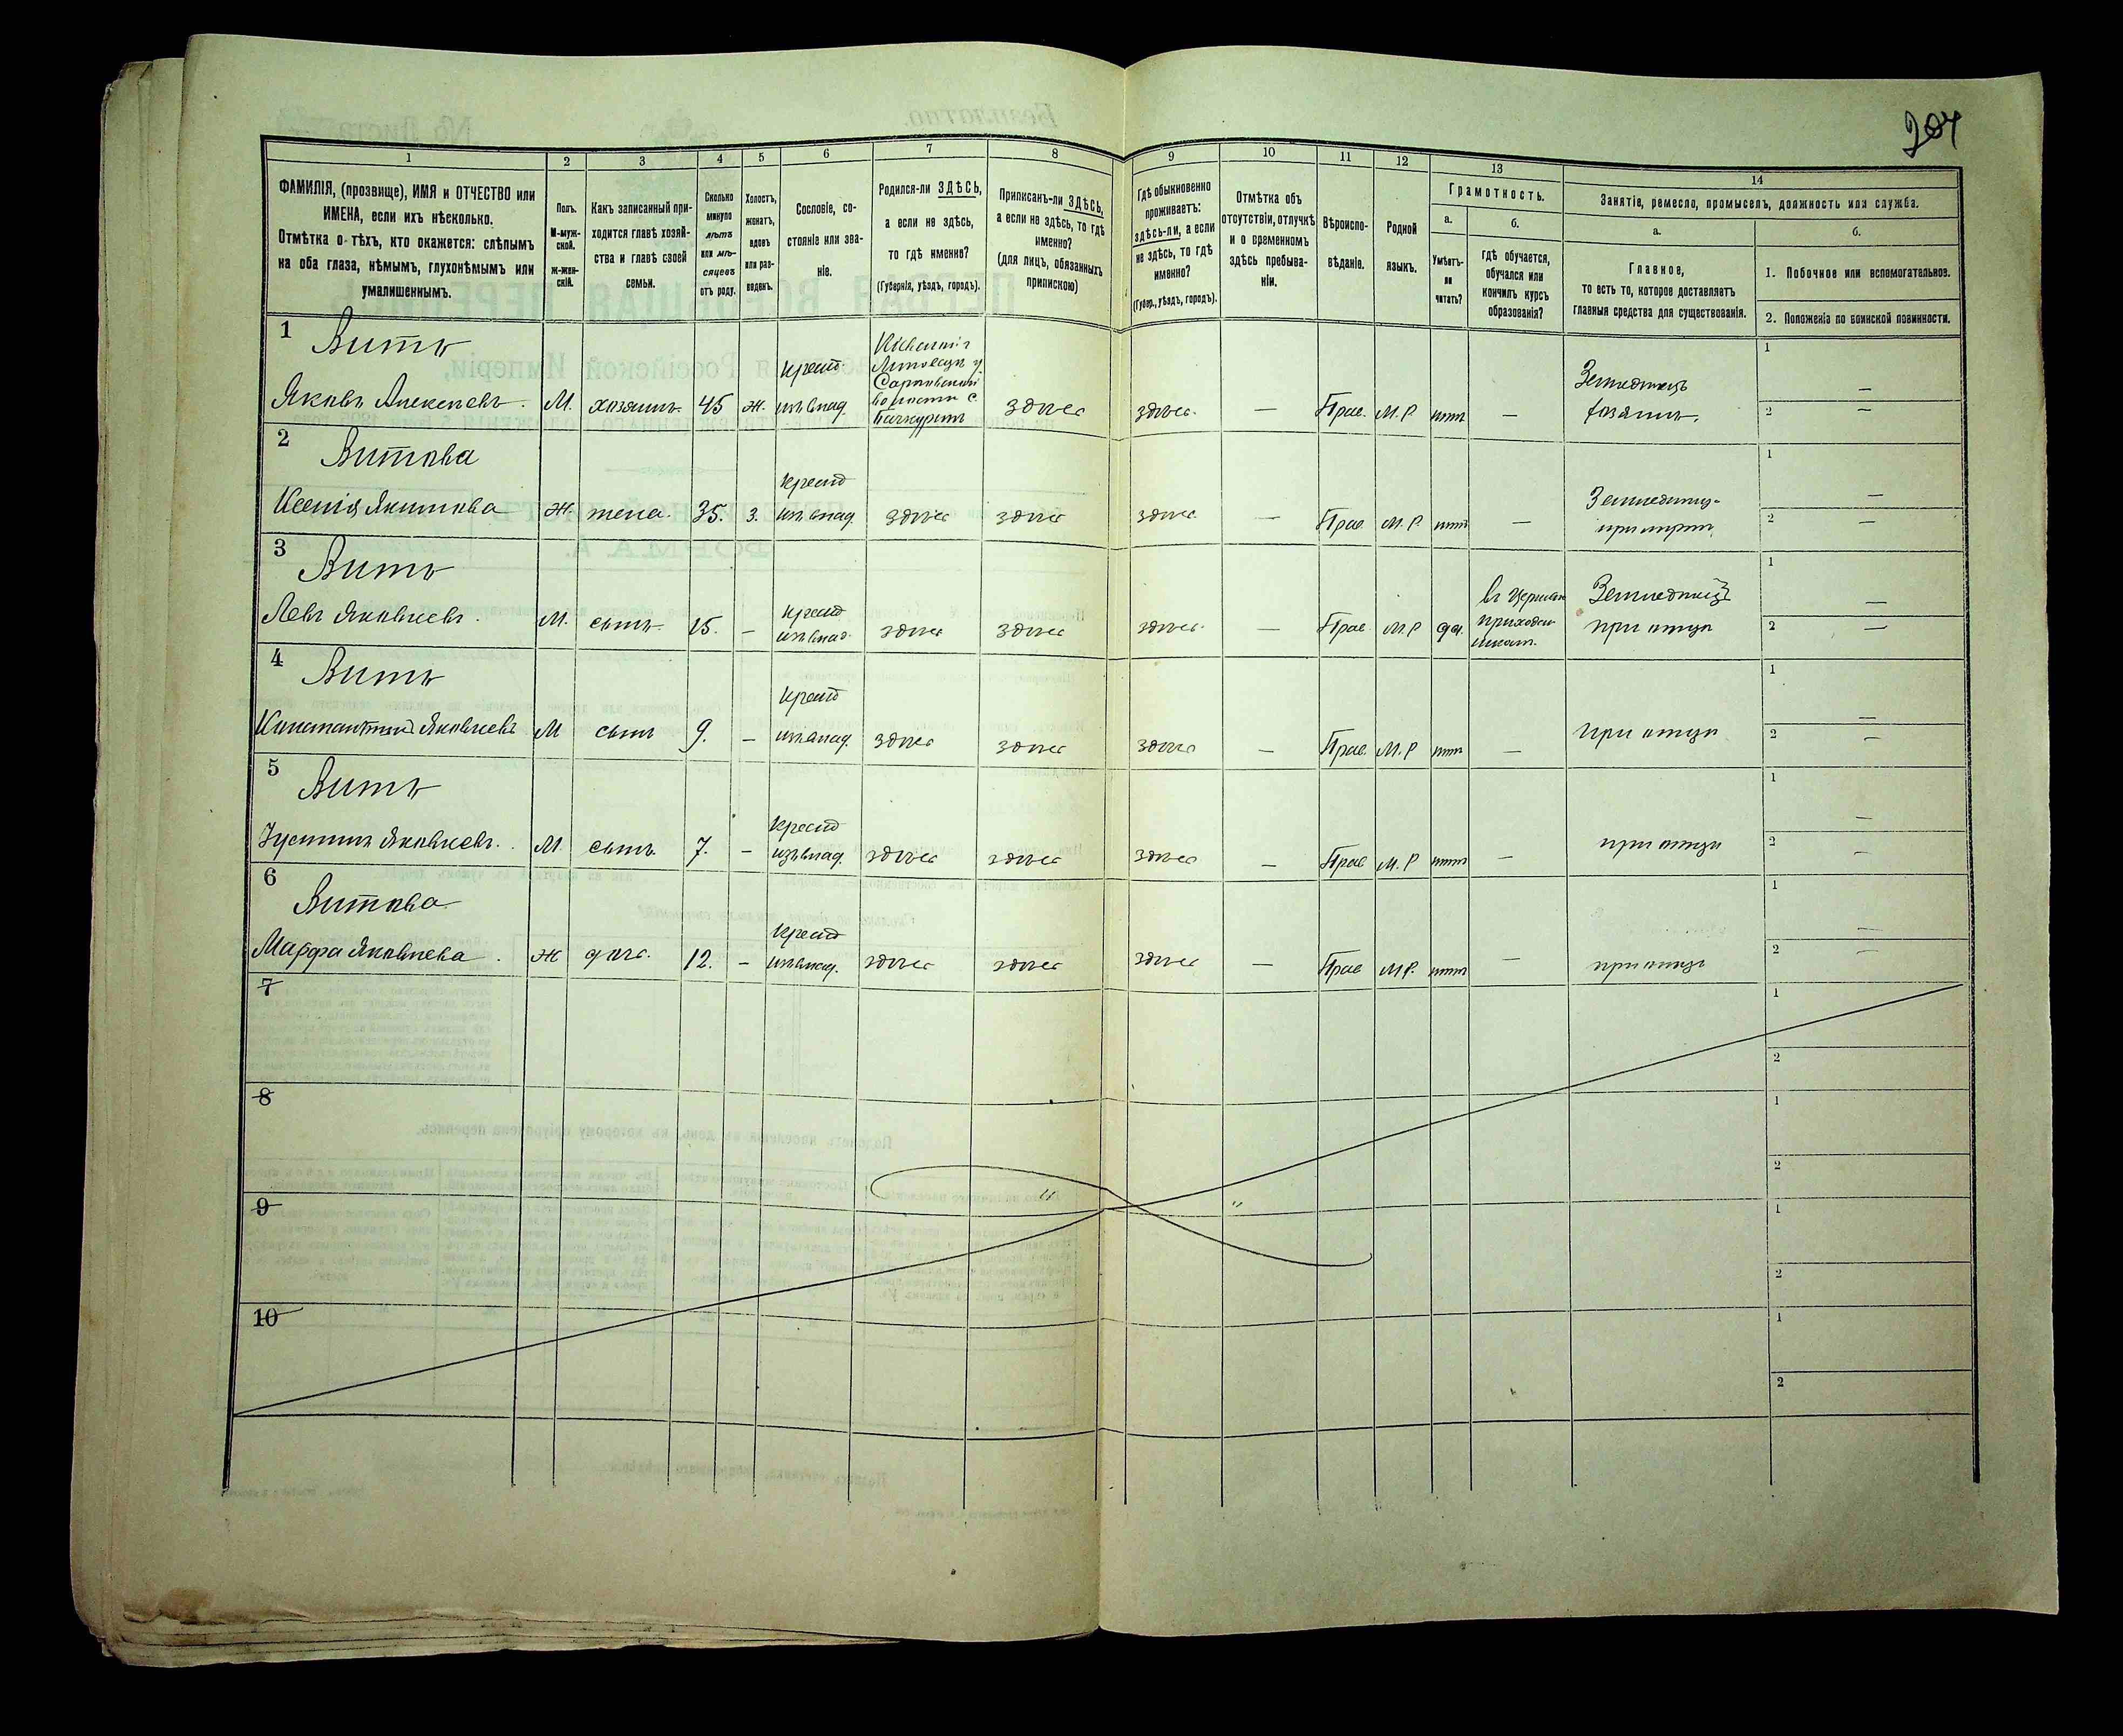 204
1 2 3 4 5 6 7 8 9 10 11 12 13 14
ФАМИЛІЯ, (прозвище), ИМЯ и ОТЧЕСТВО или
ИМЕНА, если ихъ нѣсколько.
Отмѣтка о тѣхъ, кто окажется: слѣпымъ
на оба глаза, нѣмымъ, глухонѣмымъ или
умалишеннымъ.
Полъ.
М-муж-
ской.
ж-жен-
скій.
Какъ записанный при-
ходится главѣ хозяй-
ства и главѣ своей
семьи.
Сколько
минуло
лѣтъ
или мѣ-
сяцевъ
отъ роду.
Холостъ,
женатъ,
вдовъ
или раз-
веденъ.
Сословіе, со-
стояніе или зва-
ніе.
Родился-ли ЗДѢСЬ,
а если не здѣсь,
то гдѣ именно?
(Губернія, уѣздъ, городъ).
Приписанъ-ли ЗДѢСЬ,
а если не здѣсь, то гдѣ
именно?
(для лицъ, обязанныхъ
припискою)
Гдѣ обыкновенно
проживаетъ:
здѣсь-ли, а если
не здѣсь, то гдѣ
именно?
(Губер., уѣздъ, городъ).
Отмѣтка объ
отсутствіи, отлучкѣ
и о временномъ
здѣсь пребыва-
ніи.
Вѣроиспо-
вѣданіе.
Родной
языкъ.
Грамотность.
а.
Умѣетъ-
ли
читать?
б.
гдѣ обучается,
обучался или
кончилъ курсъ
образованія?
Занятіе, ремесло, промыселъ, должность или служба.
а.
Главное,
то есть то, которое доставляетъ
главныя средства для существованія.
б.
1. Побочное или вспомогательное.
2. Положеніе по воинской повинности.
1 Витъ
Яковъ Алексѣевъ. М. хозяинъ 45 ж. крест. изъ влад. здѣсь здѣсь — Прав. М.Р нѣтъ — Земледѣлецъ хозяинъ. 1 — 2 —
2 Витова
Ксенія Якимова ж. жена. 35. з. крест изъ влад. здѣсь здѣсь здѣсь — Прав М.Р. нѣтъ — 1 — 2 —
3 Витъ
Левъ Яковлевъ. М. сынъ 15. — крест изъ влад. здѣсь здѣсь здѣсь — Прав М.Р да. въ Церковн приходск школ. Земледѣлецъ при отцѣ 1 — 2 —
4 Витъ
Константинъ Яковлевъ М сынъ 9. — крест изъ влад. здѣсь здѣсь здѣсь — Прав. М.Р нѣтъ — при отцѣ 1 — 2 —
5 Витъ
Іустинъ Яковлевъ. М. сынъ 7. — крест изъ влад. здѣсь здѣсь здѣсь — Прав М.Р нѣтъ — при отцѣ 1 — 2 —
6 Витова
Марфа Яковлева ж дочь. 12. — крест изъ влад. здѣсь здѣсь здѣсь — Прав М.Р. нѣтъ — при отцѣ 1 — 2 —
7 1 2
8 1 2
9 1 2
10 1 2